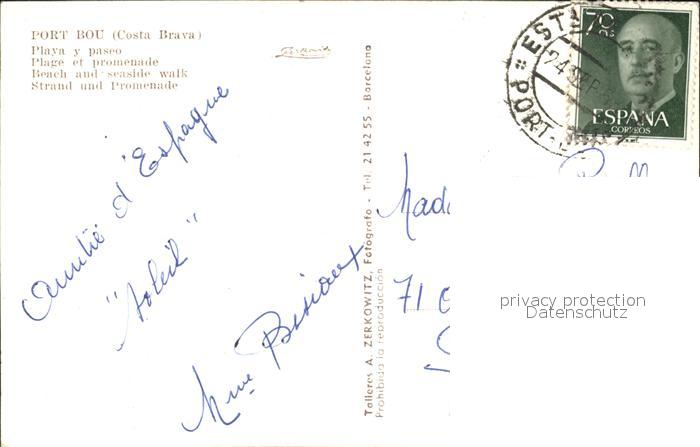 PORT BOU (Costa Brava)
Playa y paseo
Plage et promenade
Beach and seaside walk
Strand und Promenade
Amitié d'Espagne
"Soleil"
Mme
Talleres A. ZERKOWITZ, Fotógrafo - Tel. 21 42 55 - Barcelona
Prohibida la reproducción
70 CTS
ESPAÑA
CORREOS
PORT-
Mada
71
privacy protection
Datenschutz